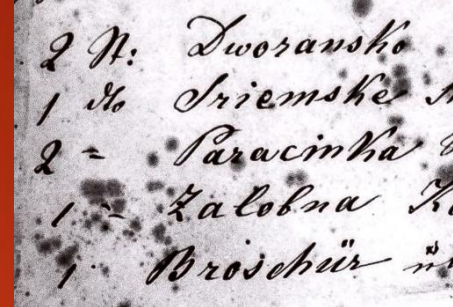 2 St: Dworansko
1 do Sriemske
2 = Paracinka
1 = Zalobna
1 Broschür